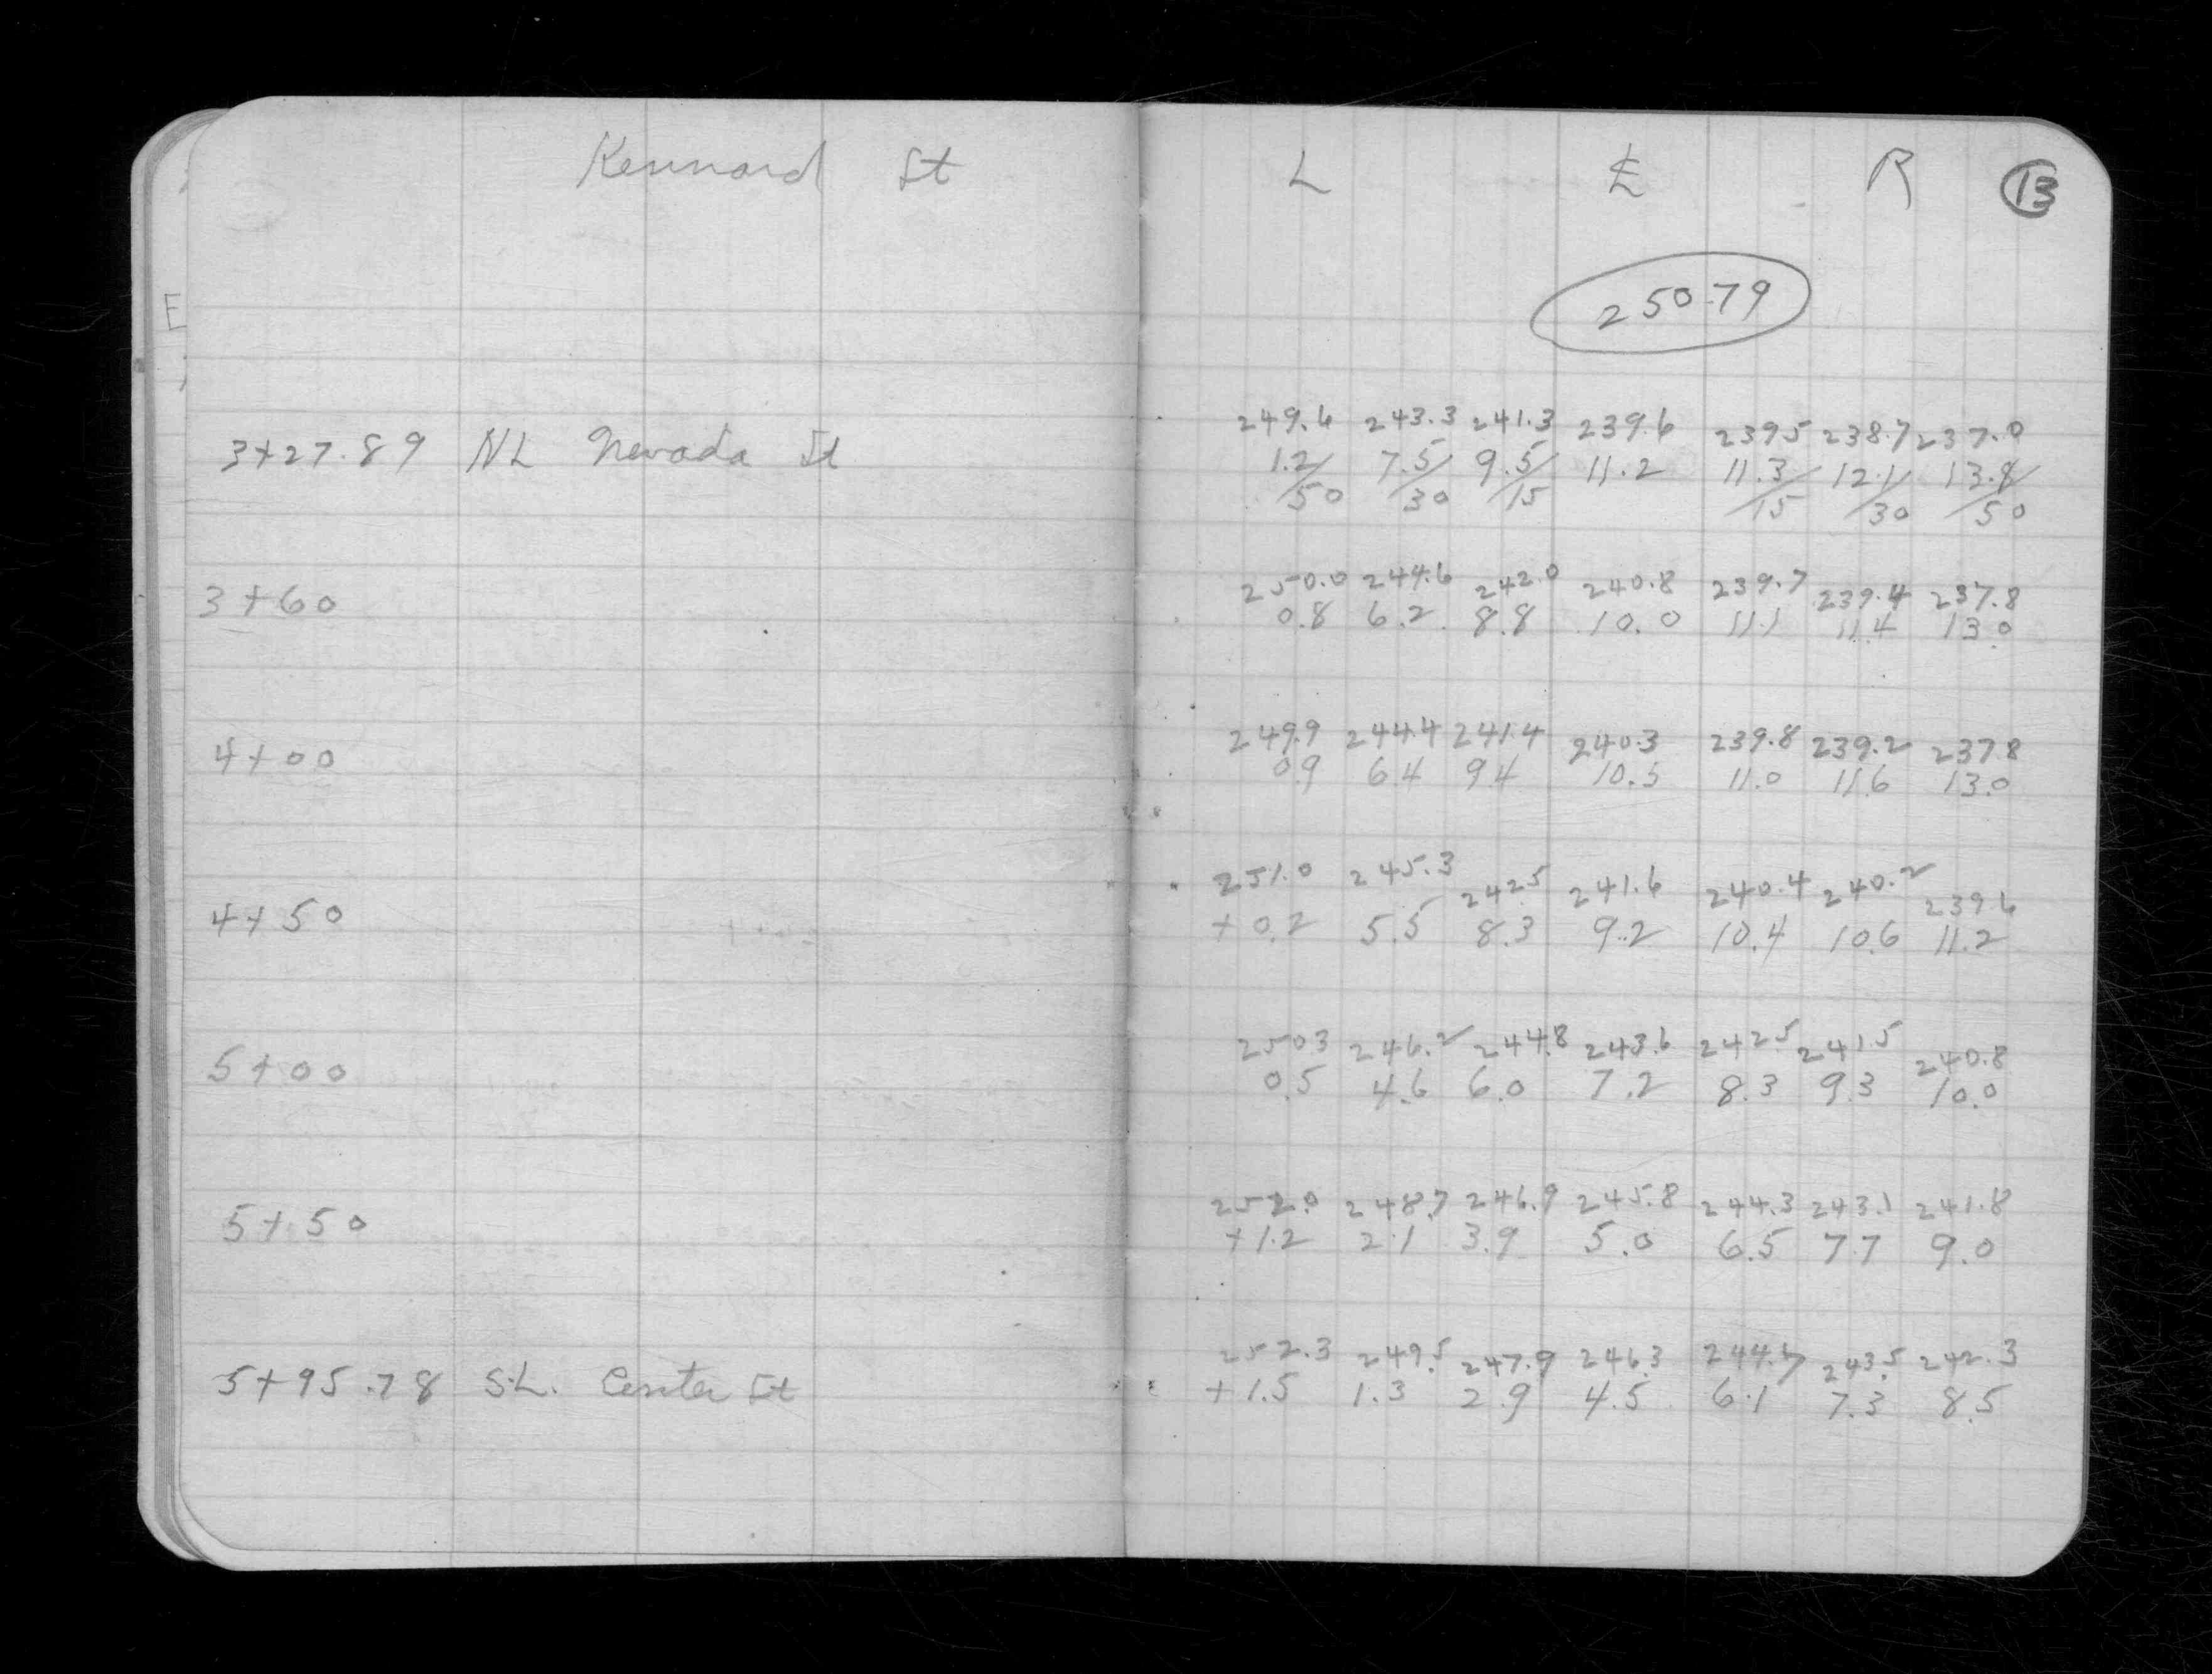 Kennard St
L ℄ R 13
250.79
249.6 243.3 241.3 239.6 239.5 238.7 237.0
3+27.89 NL Nevada St 1.2/50 7.5/30 9.5/15 11.2 11.3/15 12.1/30 13.8/50
250.0 244.6 242.0 240.8 239.7 239.4 237.8
3+60 0.8 6.2 8.8 10.0 11.1 11.4 13.0
249.9 244.4 241.4 240.3 239.8 239.2 237.8
4+00 0.9 6.4 9.4 10.5 11.0 11.6 13.0
251.0 245.3 242.5 241.6 240.4 240.2 239.6
4+50 +0.2 5.5 8.3 9.2 10.4 10.6 11.2
250.3 246.2 244.8 243.6 242.5 241.5 240.8
5+00 0.5 4.6 6.0 7.2 8.3 9.3 10.0
252.0 248.7 246.9 245.8 244.3 243.1 241.8
5+50 +1.2 2.1 3.9 5.0 6.5 7.7 9.0
252.3 249.5 247.9 246.3 244.7 243.5 242.3
5+95.78 S.L. Center St +1.5 1.3 2.9 4.5 6.1 7.3 8.5
E